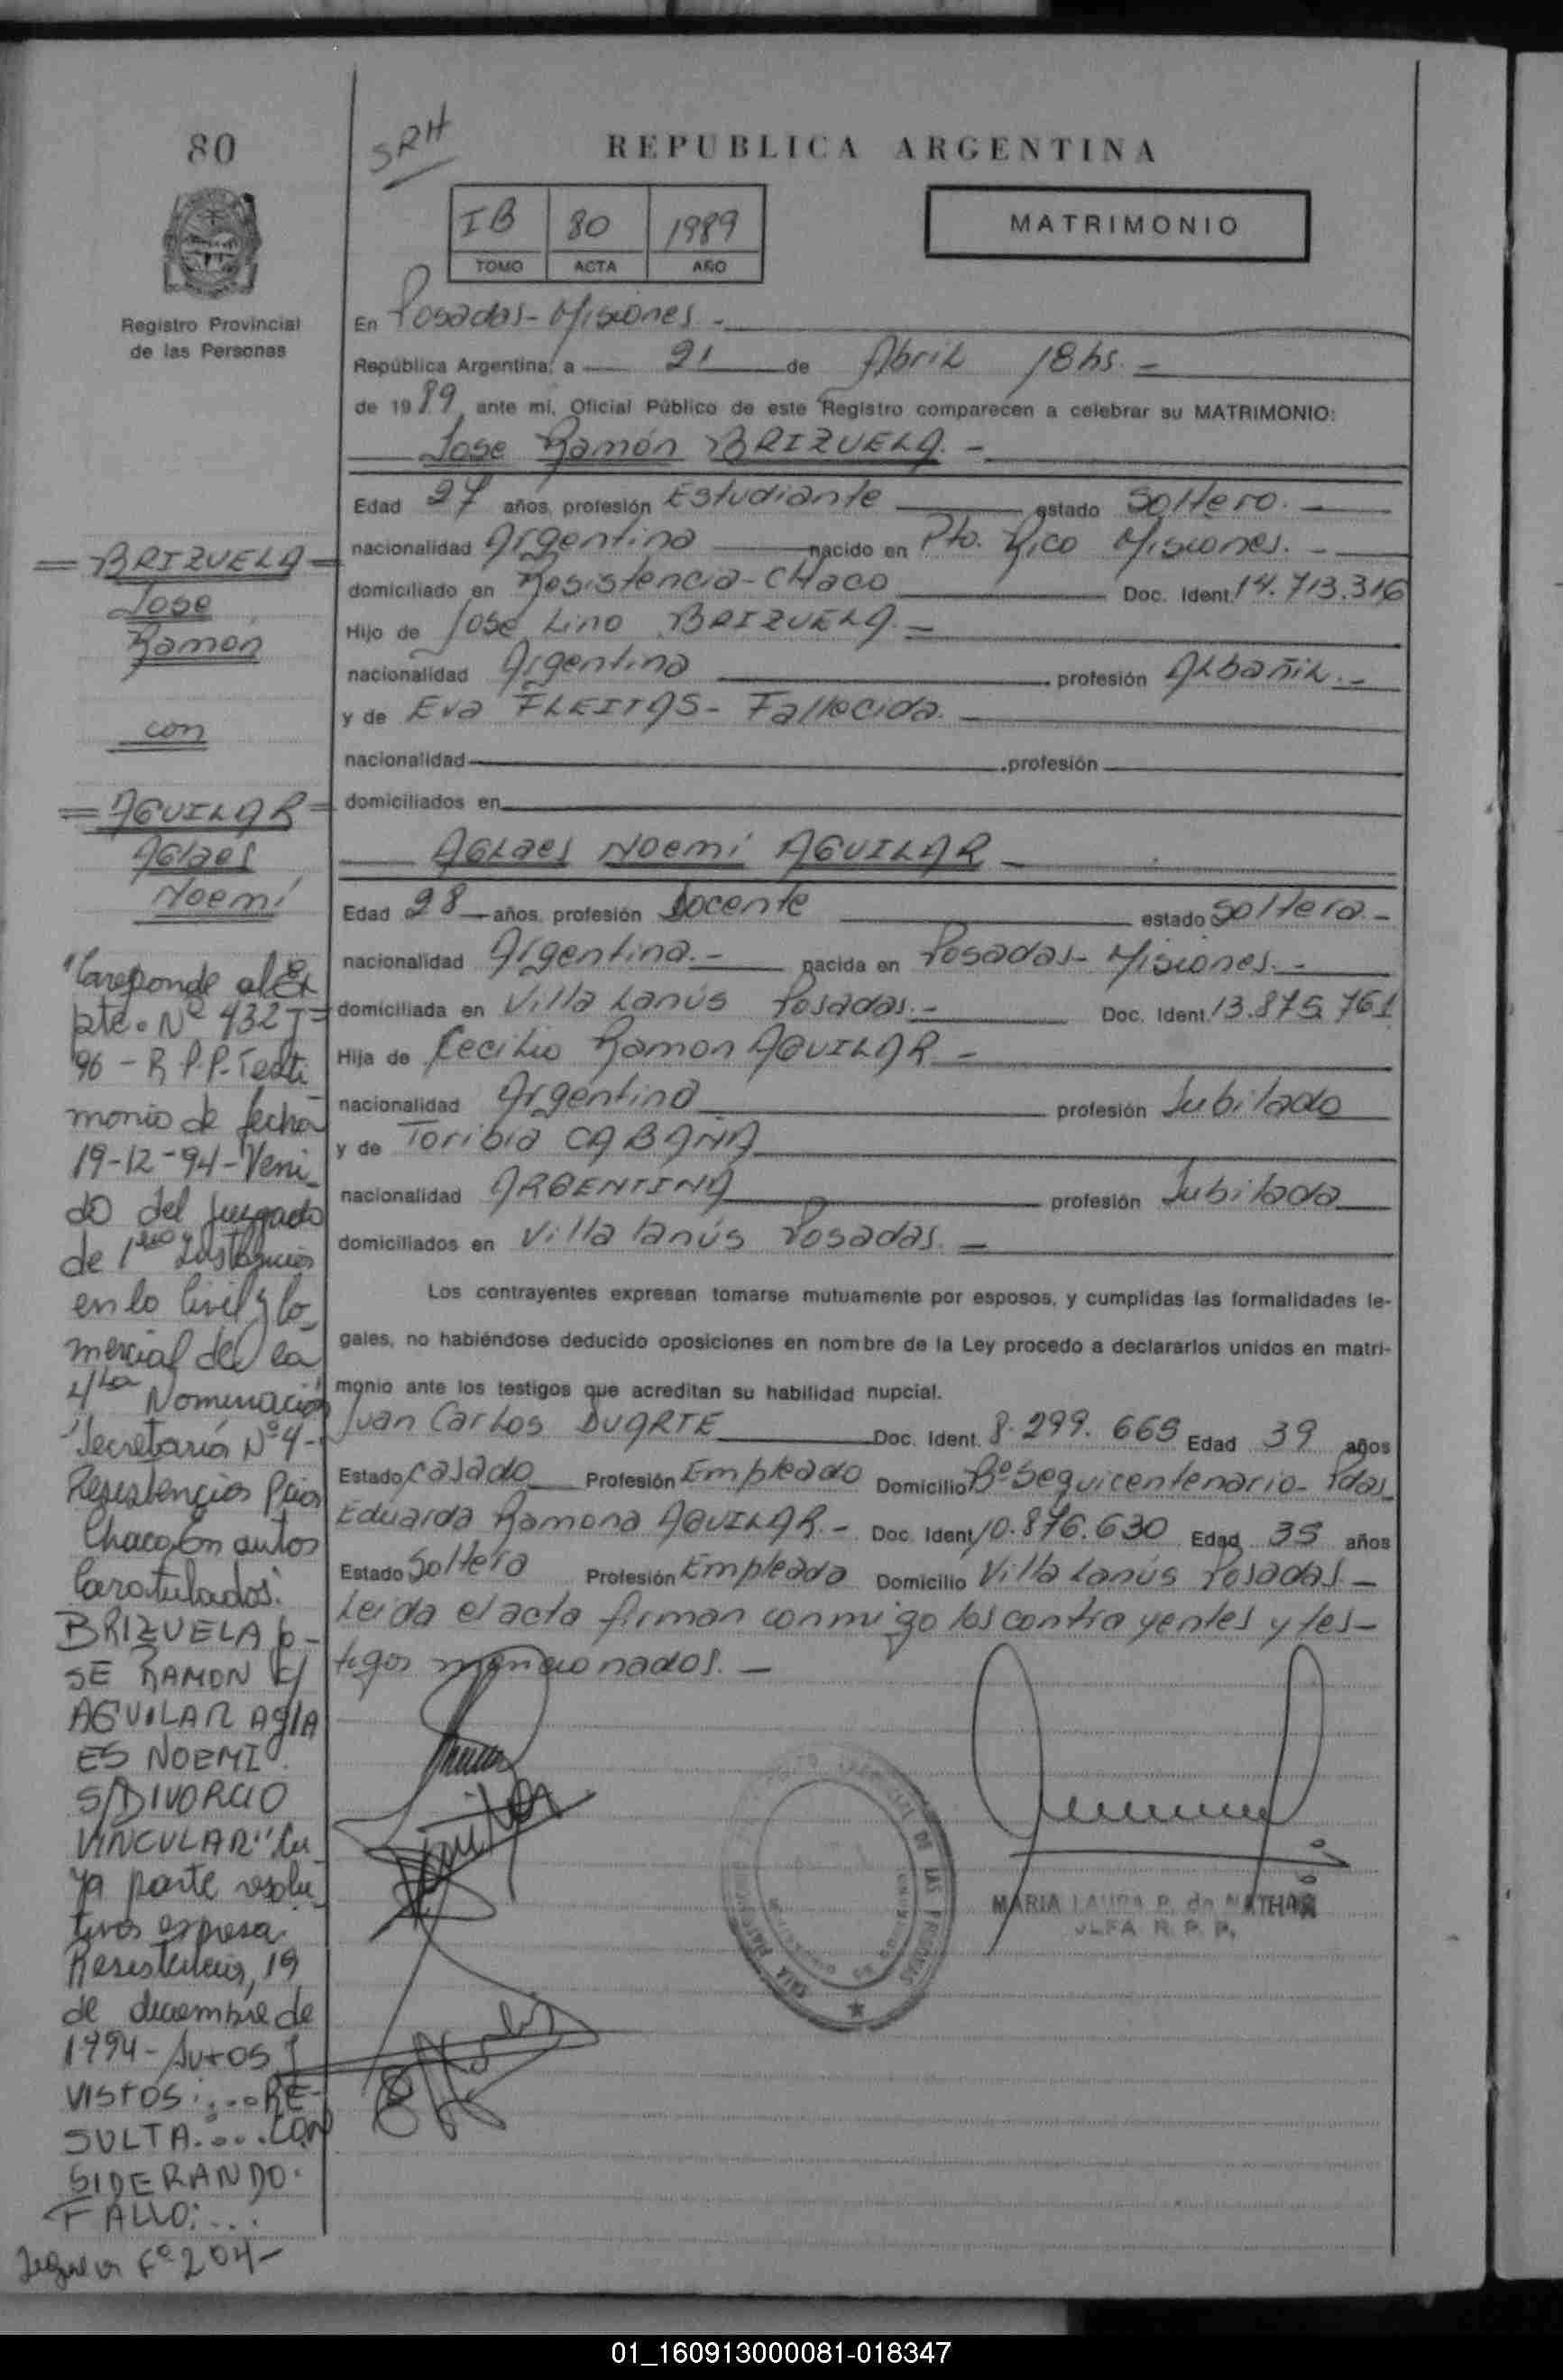 80
SRH
REPUBLICA ARGENTINA
IB 80 1989
TOMO ACTA AÑO
MATRIMONIO
Registro Provincial
de las Personas
En Posadas - Misiones -
República Argentina, a 21 de Abril 18 hs. -
de 1989, ante mi, Oficial Público de este Registro comparecen a celebrar su MATRIMONIO:
Jose Ramón BRIZUELA. -
Edad 27 años, profesión Estudiante estado Soltero. -
nacionalidad Argentina nacido en Pto. Rico Misiones. -
domiciliado en Resistencia - CHaco Doc. Ident. 14.713.316
Hijo de José Lino BRIZUELA. -
nacionalidad Argentina profesión ALbañiL. -
y de Eva FLEITAS - Fallecida. -
nacionalidad profesión
domiciliados en
AGLaes Noemí AGUILAR -
Edad 28 años, profesión Docente estado Soltera. -
nacionalidad Argentina. - nacida en Posadas - Misiones. -
domiciliada en Villa Lanús Posadas. - Doc. Ident. 13.875.761
Hija de Cecilio Ramon AGUILAR -
nacionalidad Argentina profesión Jubilado
y de Toribia CABAÑA
nacionalidad ARGENTINA profesión Jubilada
domiciliados en Villa Lanús Posadas. -
Los contrayentes expresan tomarse mutuamente por esposos, y cumplidas las formalidades le-
gales, no habiéndose deducido oposiciones en nombre de la Ley procedo a declararlos unidos en matri-
monio ante los testigos que acreditan su habilidad nupcial.
Juan Carlos DUARTE Doc. Ident. 8.299.669 Edad 39 años
Estado Casado Profesión Empleado Domicilio Bº Sequicentenario - Pdas
Eduarda Ramona AGUILAR. - Doc. Ident. 10.876.630 Edad 35 años
Estado Soltera Profesión Empleada Domicilio Villa Lanús Posadas -
Leida el acta firman conmigo los contrayentes y tes-
tigos mencionados. -
MARIA LAURA de NATHAN
JEFA R. P. P.
= BRIZUELA =
Jose
Ramon
con
= AGUILAR =
AGlaes
Noemí
"Coresponde al Ex
pte. Nº 432 J=
96 - R.P.P. Testi
monio de fecha
19-12-94 - Veni
do del Juzgado
de 1era Instancia
en lo Civil y Co_
mercial de la
4ta Nominación
Secretaria Nº 4 -
Resistencia Pcia
Chaco, En autos
Caratulados:
BRIZUELA JO-
SE RAMON C/
AGUILAR AGLA
ES NOEMI
S/DIVORCIO
VINCULAR" Cu
ya parte resolu
tiva expresa
Resistencia, 19
de diciembre de
1994 - Autos y
VISTOS: ... RE-
SULTA. ... CON
SIDERANDO.
FALLO: ...
Sigue en Fº 204 -
01_160913000081-018347